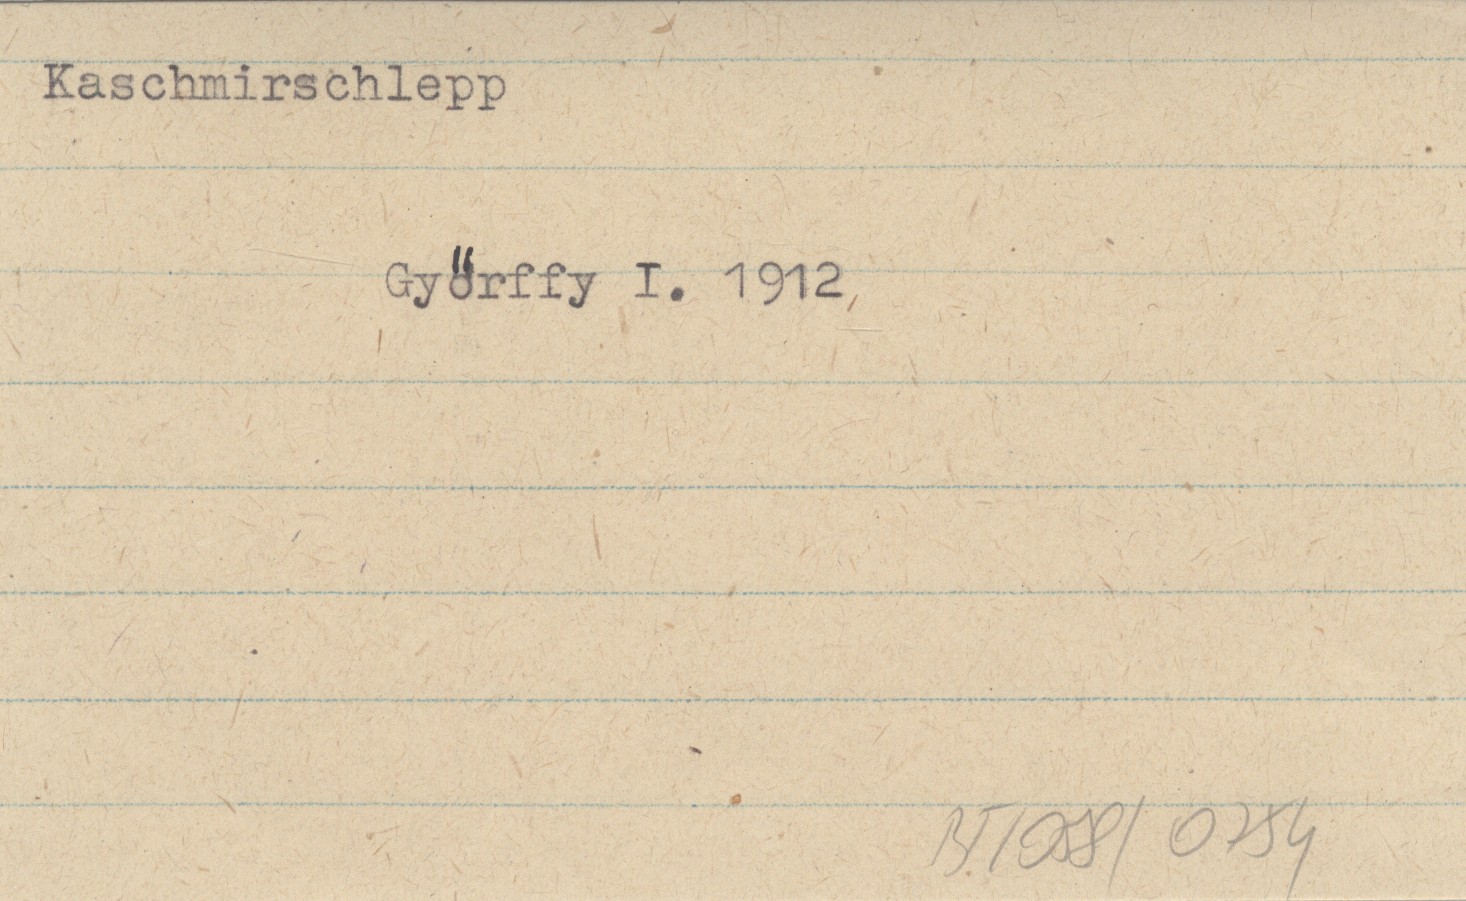 Kaschmirschlepp
Győrffy I. 1912
BT/058/ 0754